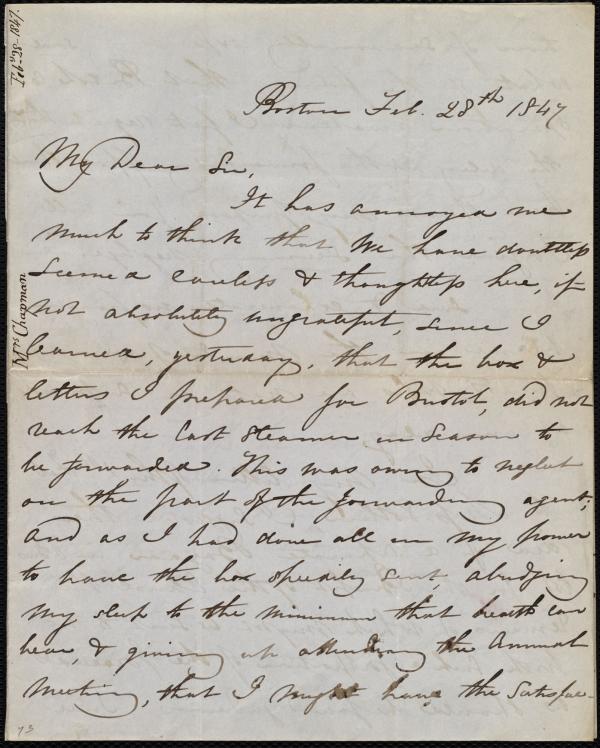 Feb. 28. 1847.
Mrs Chapman
Boston Feb. 28th 1847
My Dear Sir,
It has annoyed me
much to think that we have doubtless
seemed careless & thoughtless here, if
not absolutely ungrateful, since I
learned, yesterday, that the box &
letters I prepared for Bristol, did not
reach the last steamer in season to
be forwarded. This was owing to neglect
on the part of the forwarding agent;
and as I had done all in my power
to have the box speedily sent, abridging
my sleep to the minimum that health can
bear, & giving up attending the Annual
Meeting, that I might have the satisfac-
73